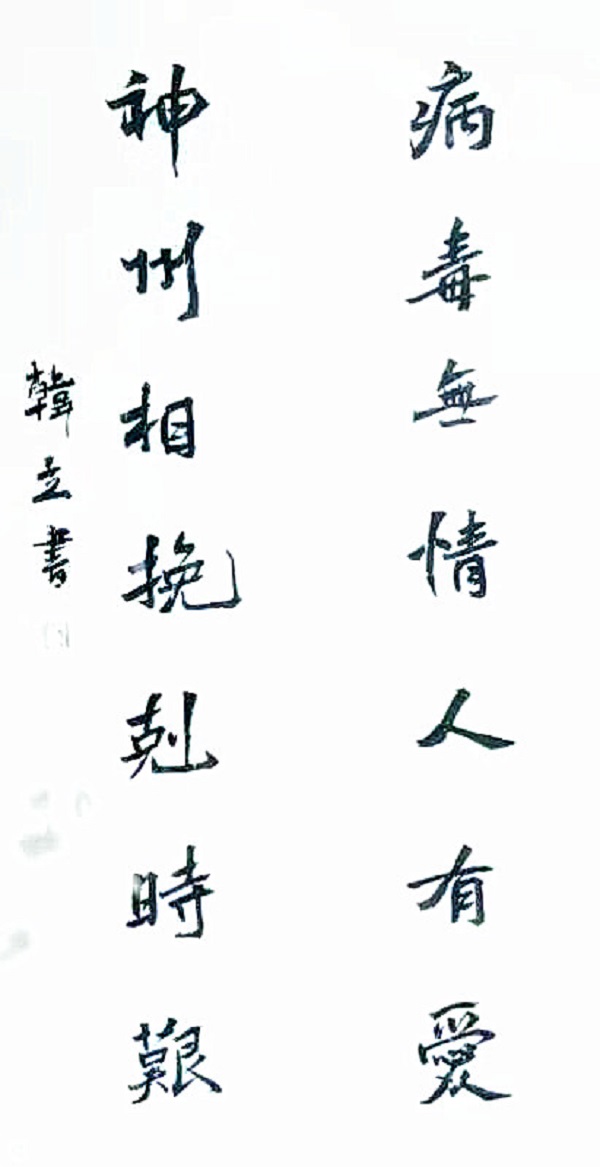 病毒無情人有愛
神州相挽剋時艱
韓立書